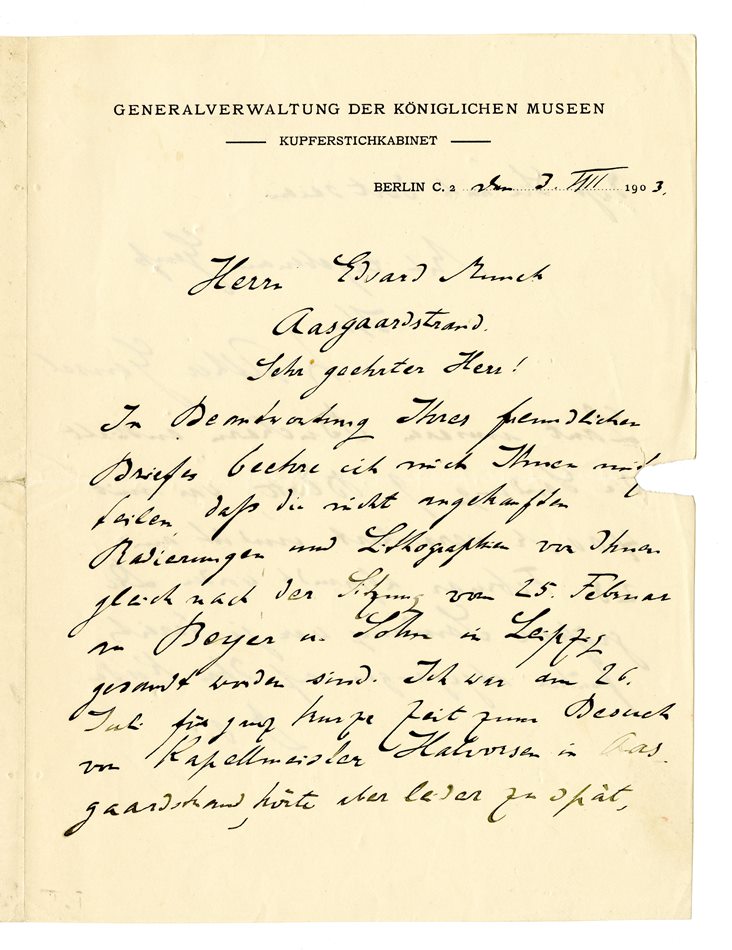 GENERALVERWALTUNG DER KÖNIGLICHEN MUSEEN
KUPFERSTICHKABINET
BERLIN C. 2 den 3. VIII 1903.
Herrn Edvard Munch
Aasgaardstrand.
Sehr geehrter Herr!
In Beantwortung Ihres freundlichen
Briefes beehre ich mich Ihnen mit
teilen, daß die nicht angekauften
Radierungen und Lithographien von Ihnen
gleich nach der Sitzung vom 25. Februar
an Beyer u. Sohn in Leipzig
gesandt worden sind. Ich war am 26.
Juli für ganz kurze Zeit zum Besuch
von Kapellmeister Halvorsen in Aas-
gaardstrand, hörte aber leider zu spät,